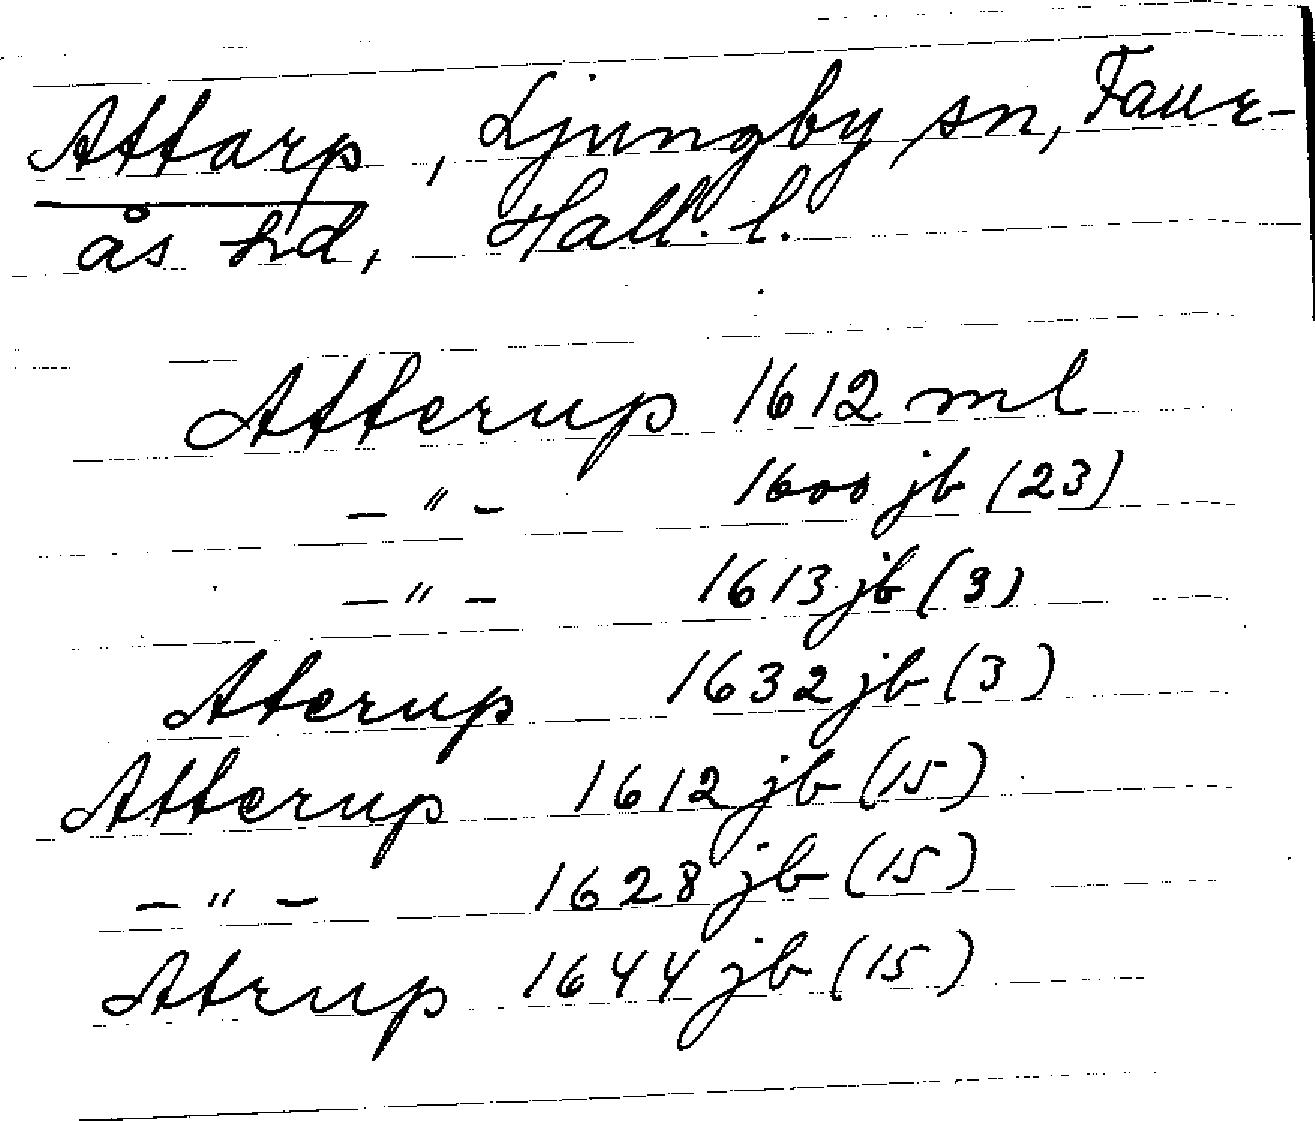 Attarp, Ljungby sn, Faur-
ås hd, Hall. l.
Atterup 1612 ml
- " - 1600 jb (23)
- " - 1613 jb (9)
Aterup 1632 jb (3)
Atterup 1612 jb (15)
- " - 1628 jb (15)
Atrup 1644 jb (15)